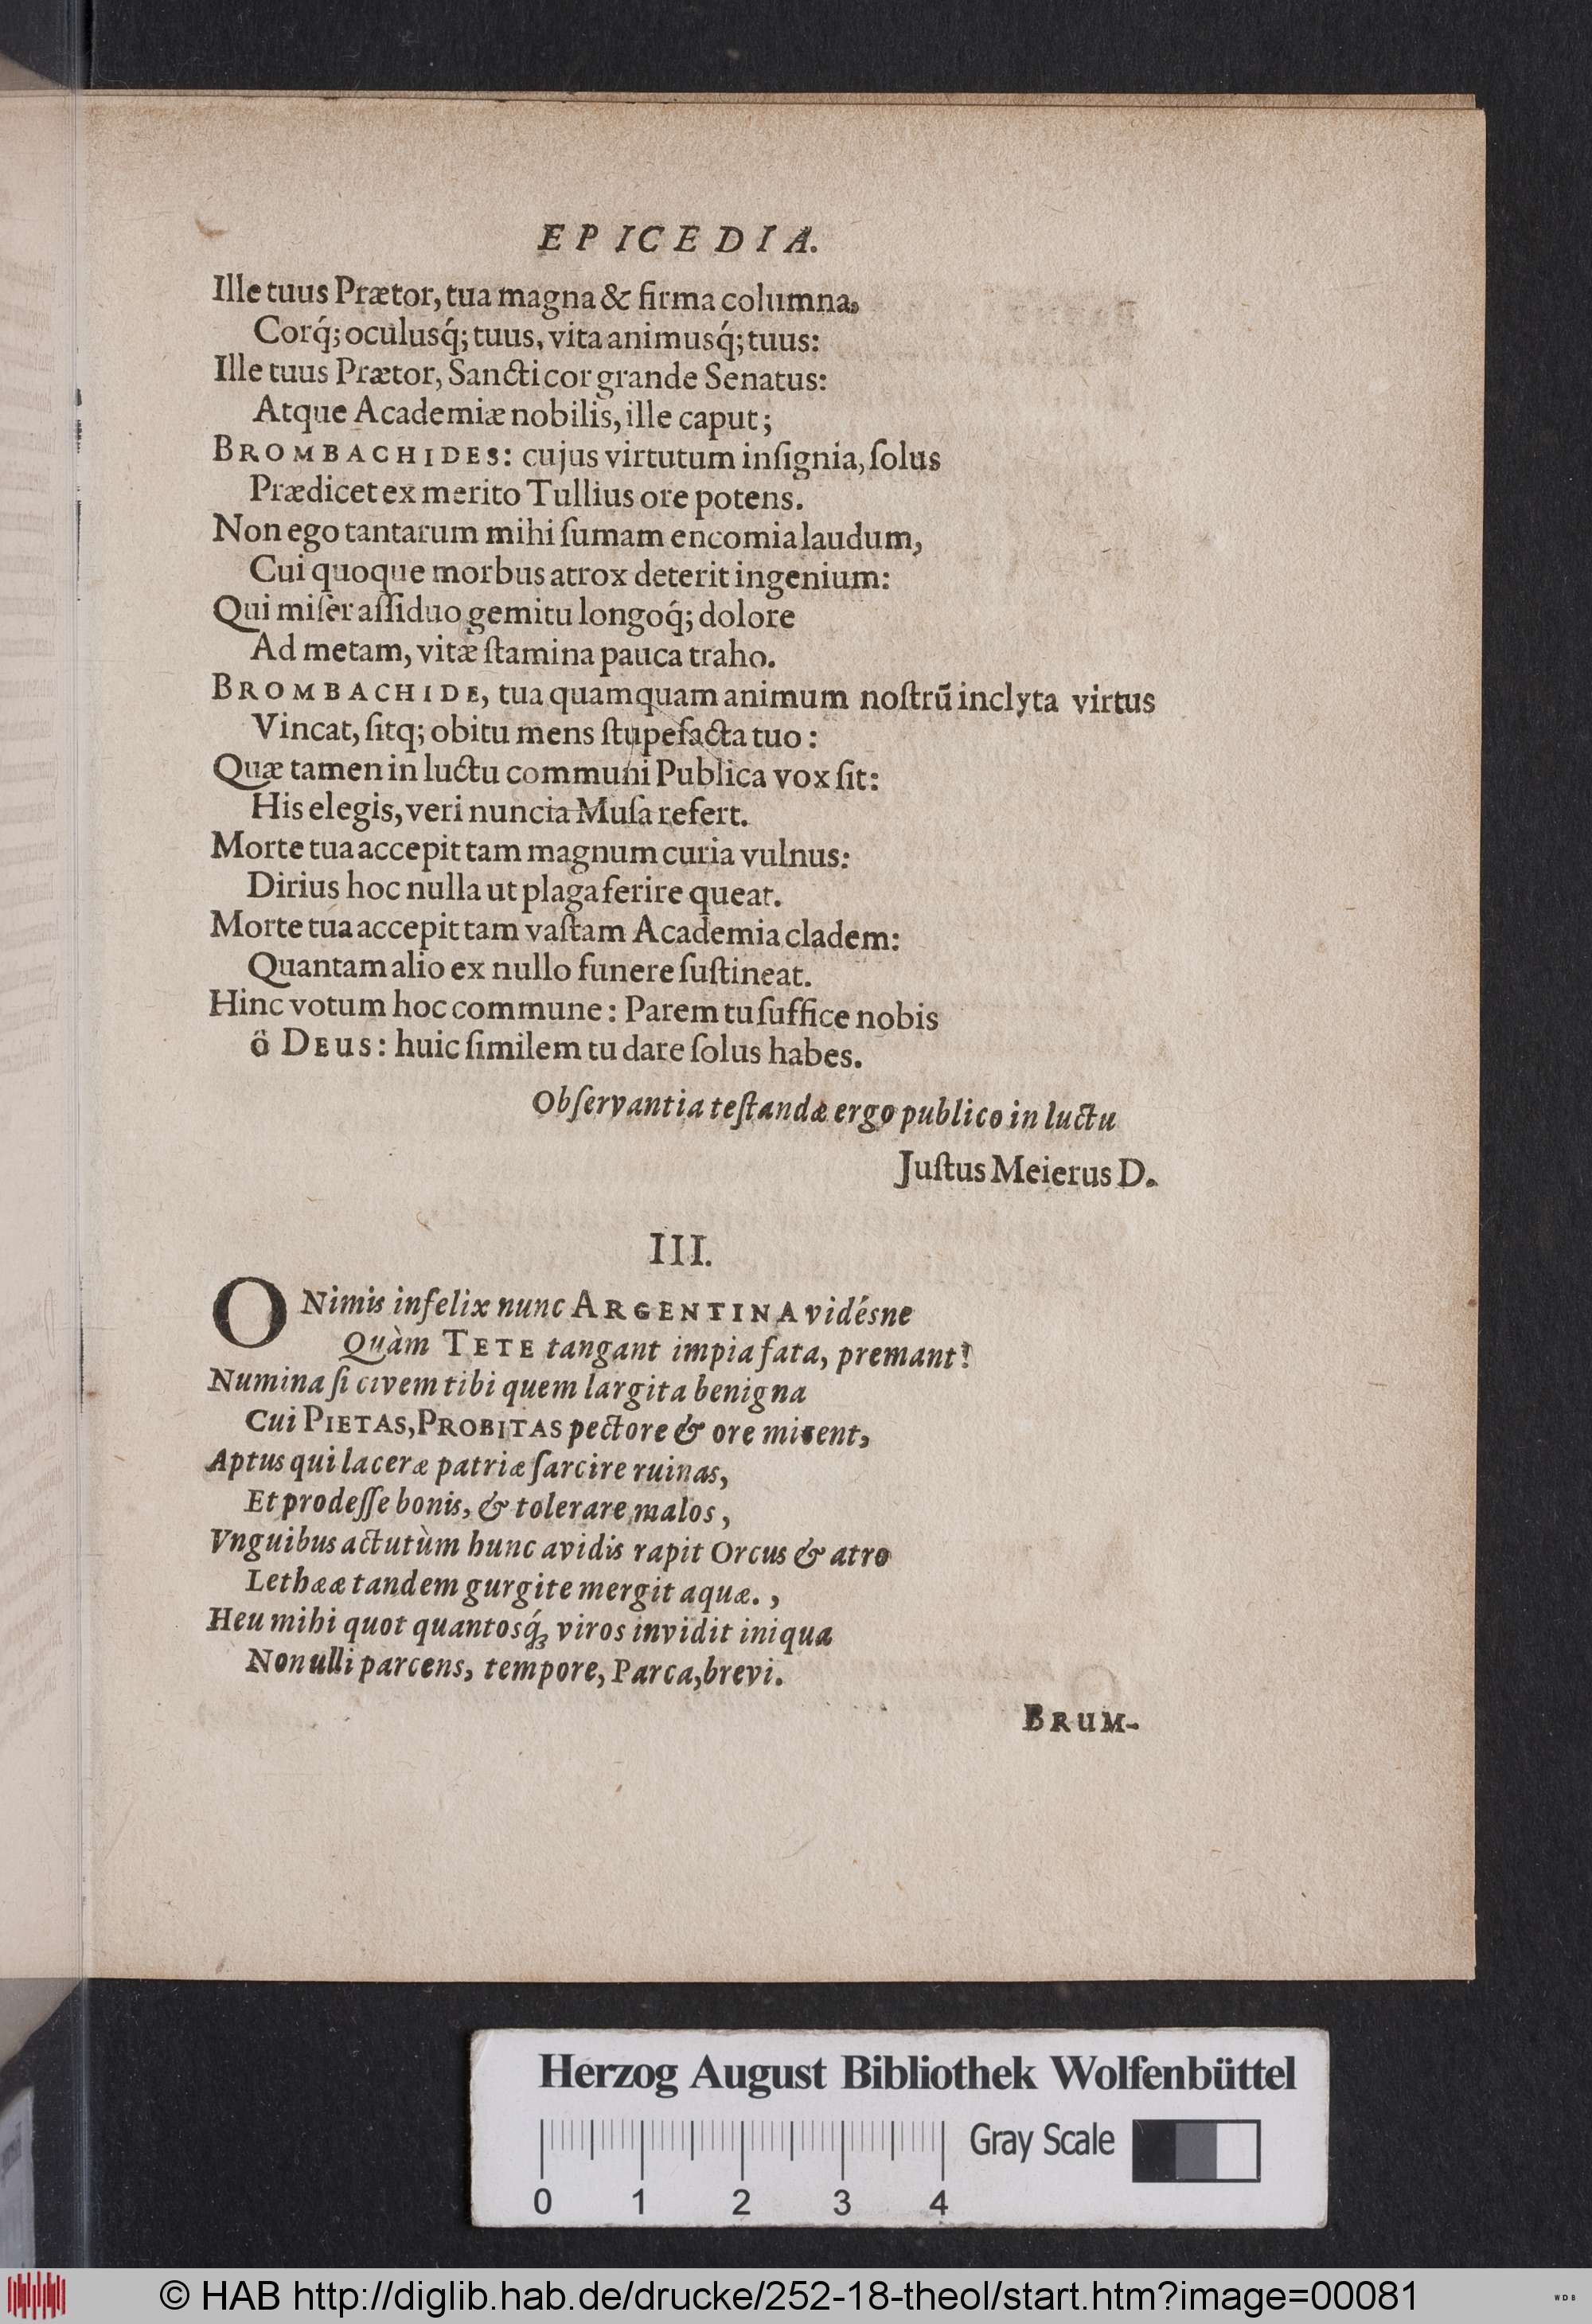 EPICEDIA.
Ille tuus Prætor, tua magna & firma columna,
Corq́; oculusq́; tuus, vita animusq́; tuus:
Ille tuus Prætor, Sancti cor grande Senatus:
Atque Academiæ nobilis, ille caput;
BROMBACHIDES: cujus virtutum inſignia, ſolus
Prædicet ex merito Tullius ore potens.
Non ego tantarum mihi ſumam encomia laudum,
Cui quoque morbus atrox deterit ingenium:
Qui miſer aſſiduo gemitu longoq́; dolore
Ad metam, vitæ ſtamina pauca traho.
BROMBACHIDE, tua quamquam animum noſtrū inclyta virtus
Vincat, ſitq; obitu mens ſtupefacta tuo:
Quæ tamen in luctu communi Publica vox ſit:
His elegis, veri nuncia Muſa refert.
Morte tua accepit tam magnum curia vulnus:
Dirius hoc nulla ut plaga ferire queat.
Morte tua accepit tam vaſtam Academia cladem:
Quantam alio ex nullo funere ſuſtineat.
Hinc votum hoc commune: Parem tu ſuffice nobis
ô DEUS: huic ſimilem tu dare ſolus habes.
Obſervantia teſtandæ ergo publico in luctu
Juſtus Meierus D.
III.
O Nimis infelix nunc ARGENTINA vidésne
Quàm TETE tangant impia fata, premant!
Numina ſi civem tibi quem largita benigna
Cui PIETAS, PROBITAS pectore & ore micent,
Aptus qui laceræ patriæ ſarcire ruinas,
Et prodeſſe bonis, & tolerare malos,
Vnguibus actutùm hunc avidis rapit Orcus & atro
Lethææ tandem gurgite mergit aquæ. ,
Heu mihi quot quantosq́; viros invidit iniqua
Non ulli parcens, tempore, Parca, brevi.
BRUM-
Herzog August Bibliothek Wolfenbüttel
Gray Scale
0 1 2 3 4
© HAB http://diglib.hab.de/drucke/252-18-theol/start.htm?image=00081
WDB